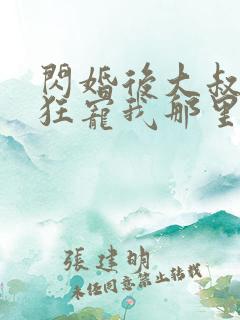 閃婚後大叔
狂寵我那里
張建明
未经同意禁止转载